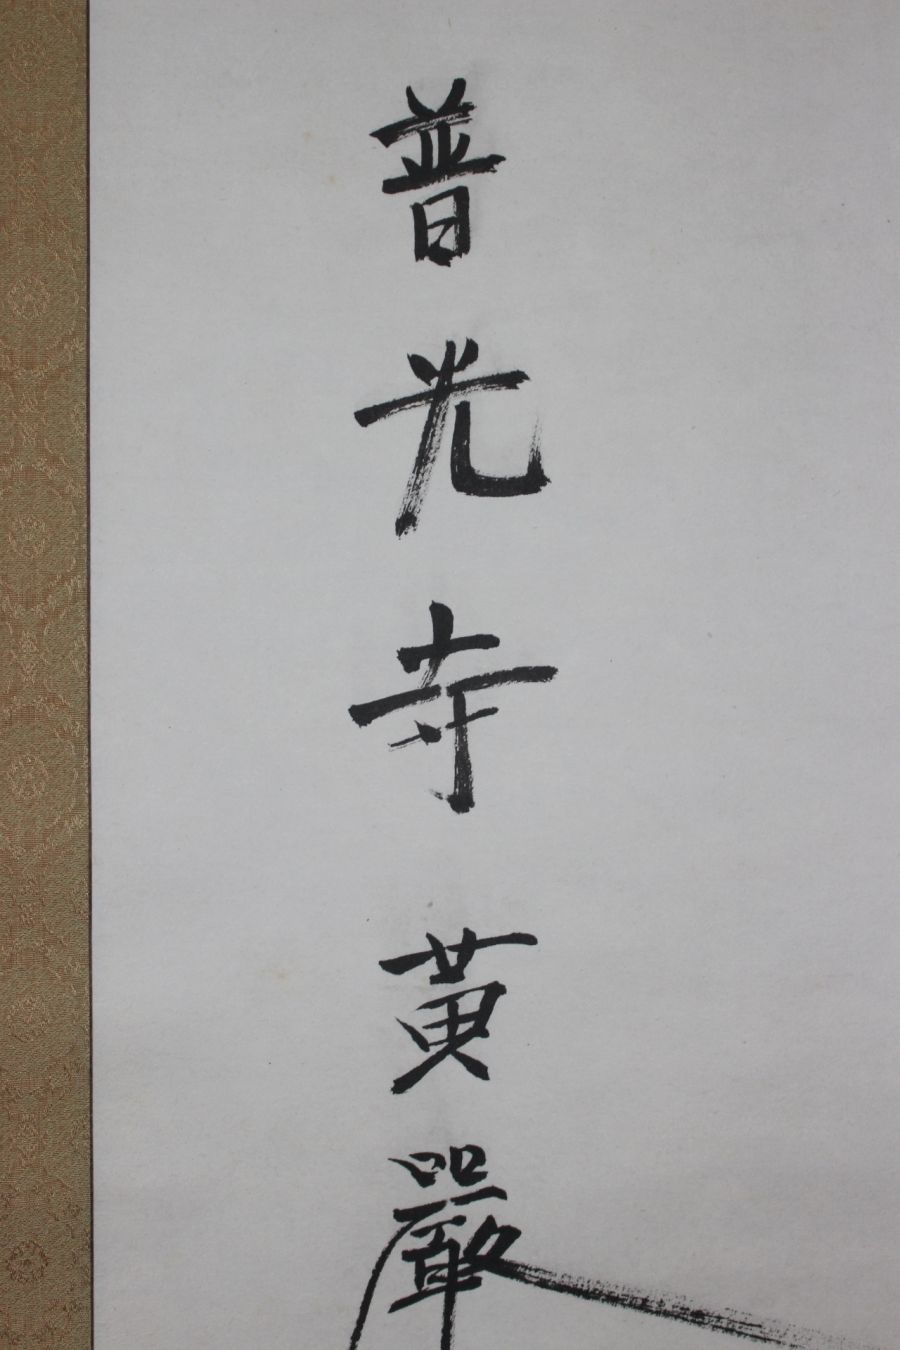 普光寺黄嚴